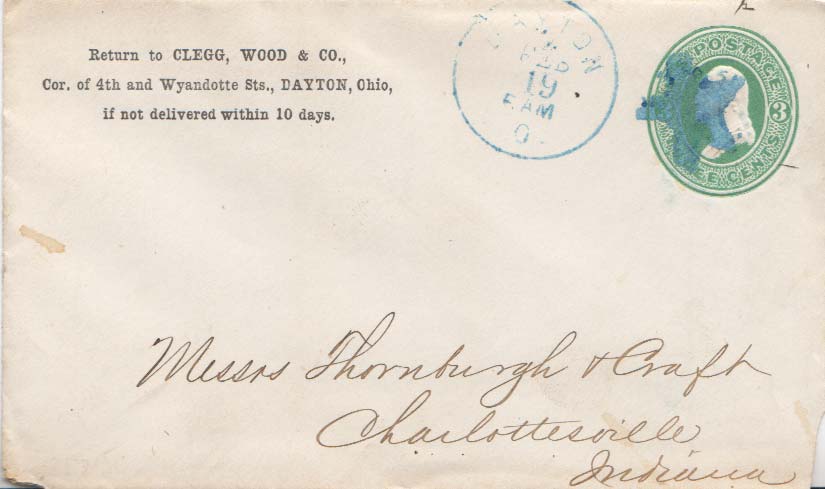 Return to CLEGG, WOOD & CO.,
Cor. of 4th and Wyandotte Sts., DAYTON, Ohio,
if not delivered within 10 days.
DAYTON
19
5 AM
O.
POSTAGE
3
Messrs Thornburgh & Craft
Charlottesville
Indiana